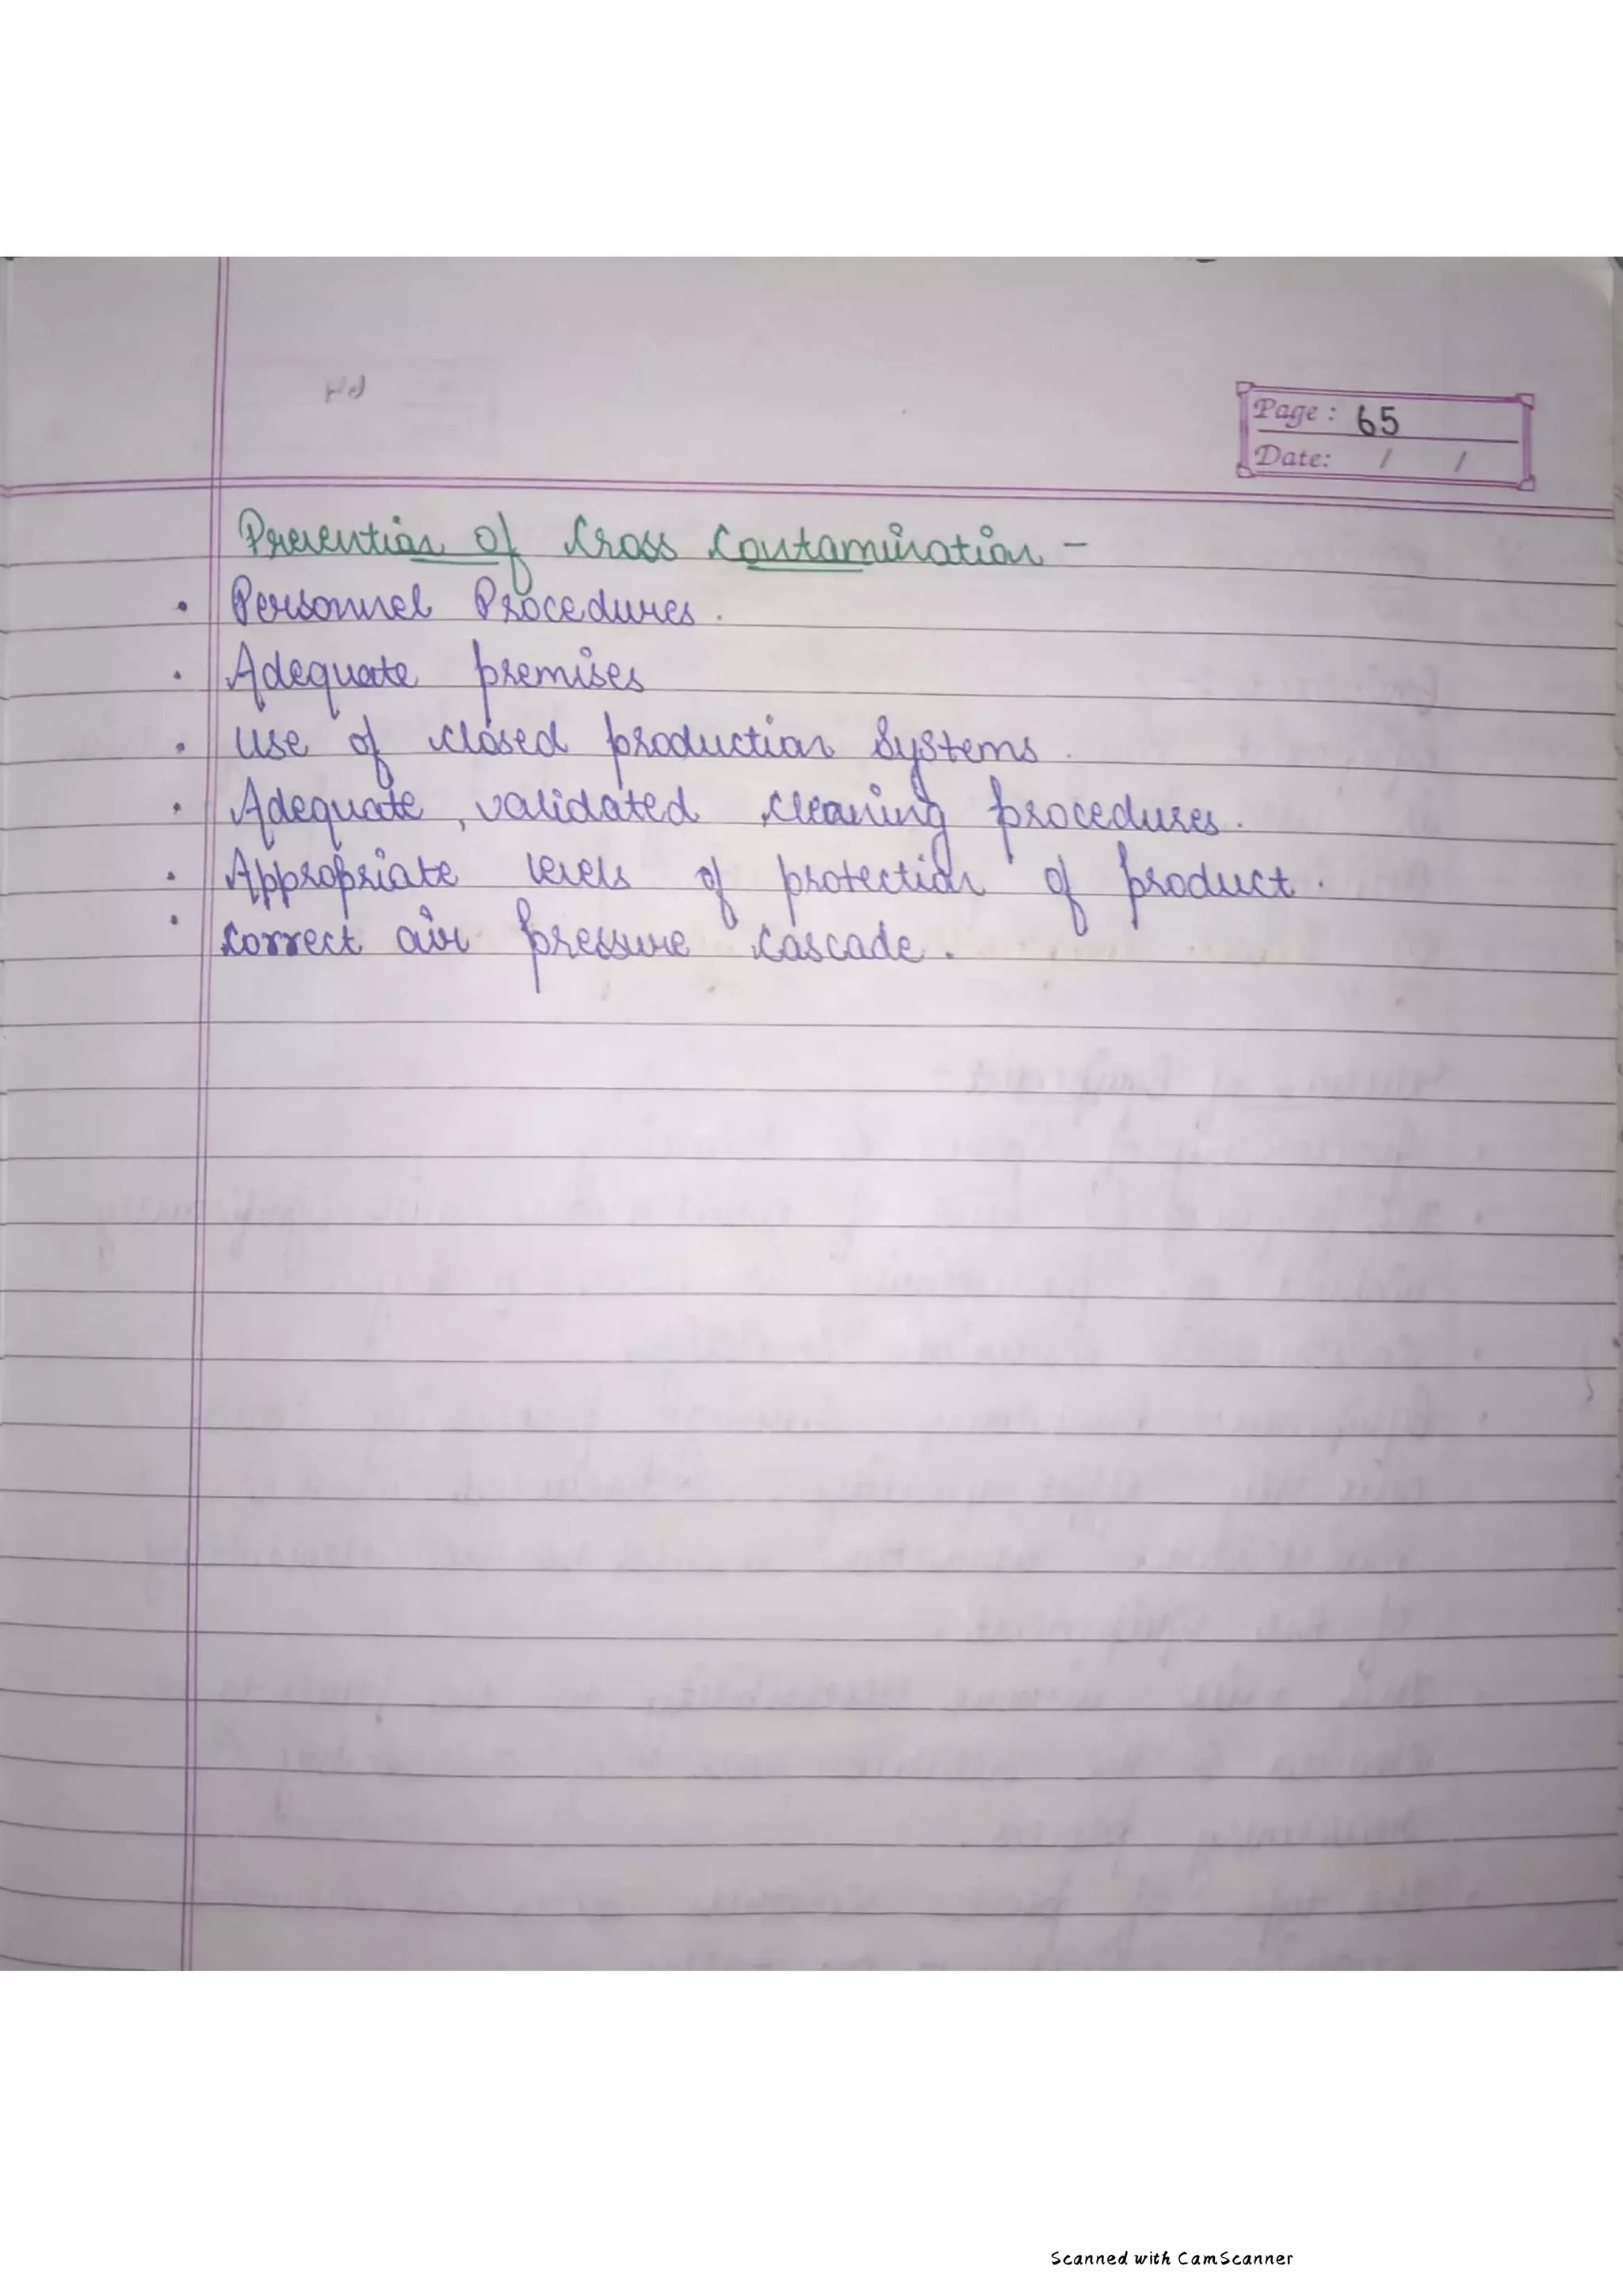 Page : 65
Date: / /
Prevention of Cross Contamination -
• Personnel Procedures.
• Adequate premises
• Use of closed production Systems.
• Adequate, validated cleaning procedures.
• Appropriate levels of protection of product.
• Correct air pressure cascade.
Scanned with CamScanner